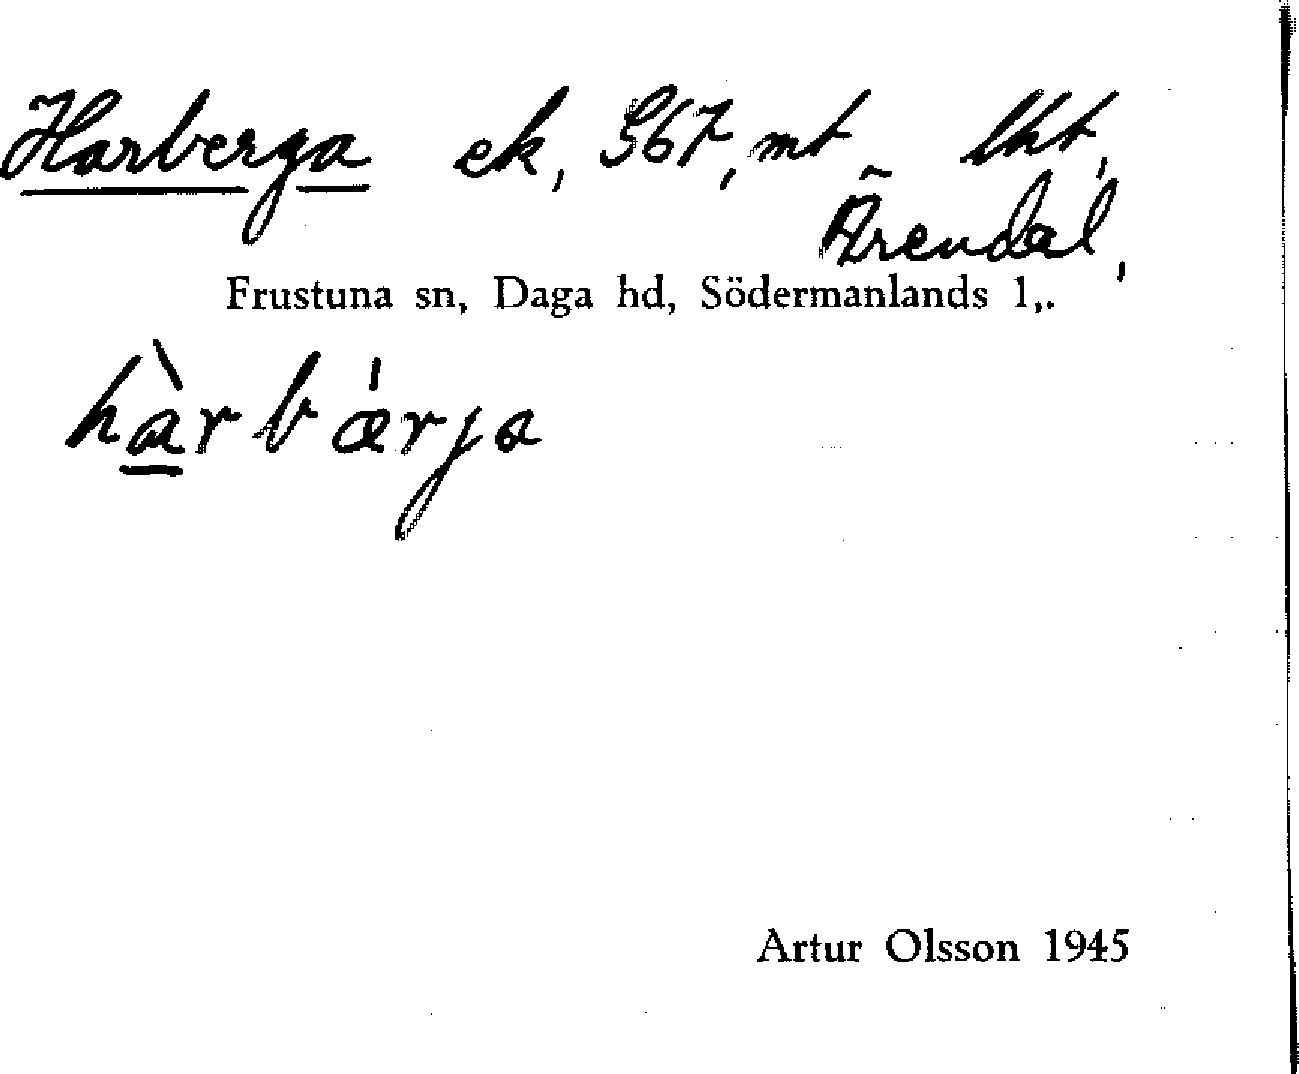 Harberga ek, S67, mt lht,
Ärendal,
Frustuna sn, Daga hd, Södermanlands l,.
hàrbǽrja
Artur Olsson 1945